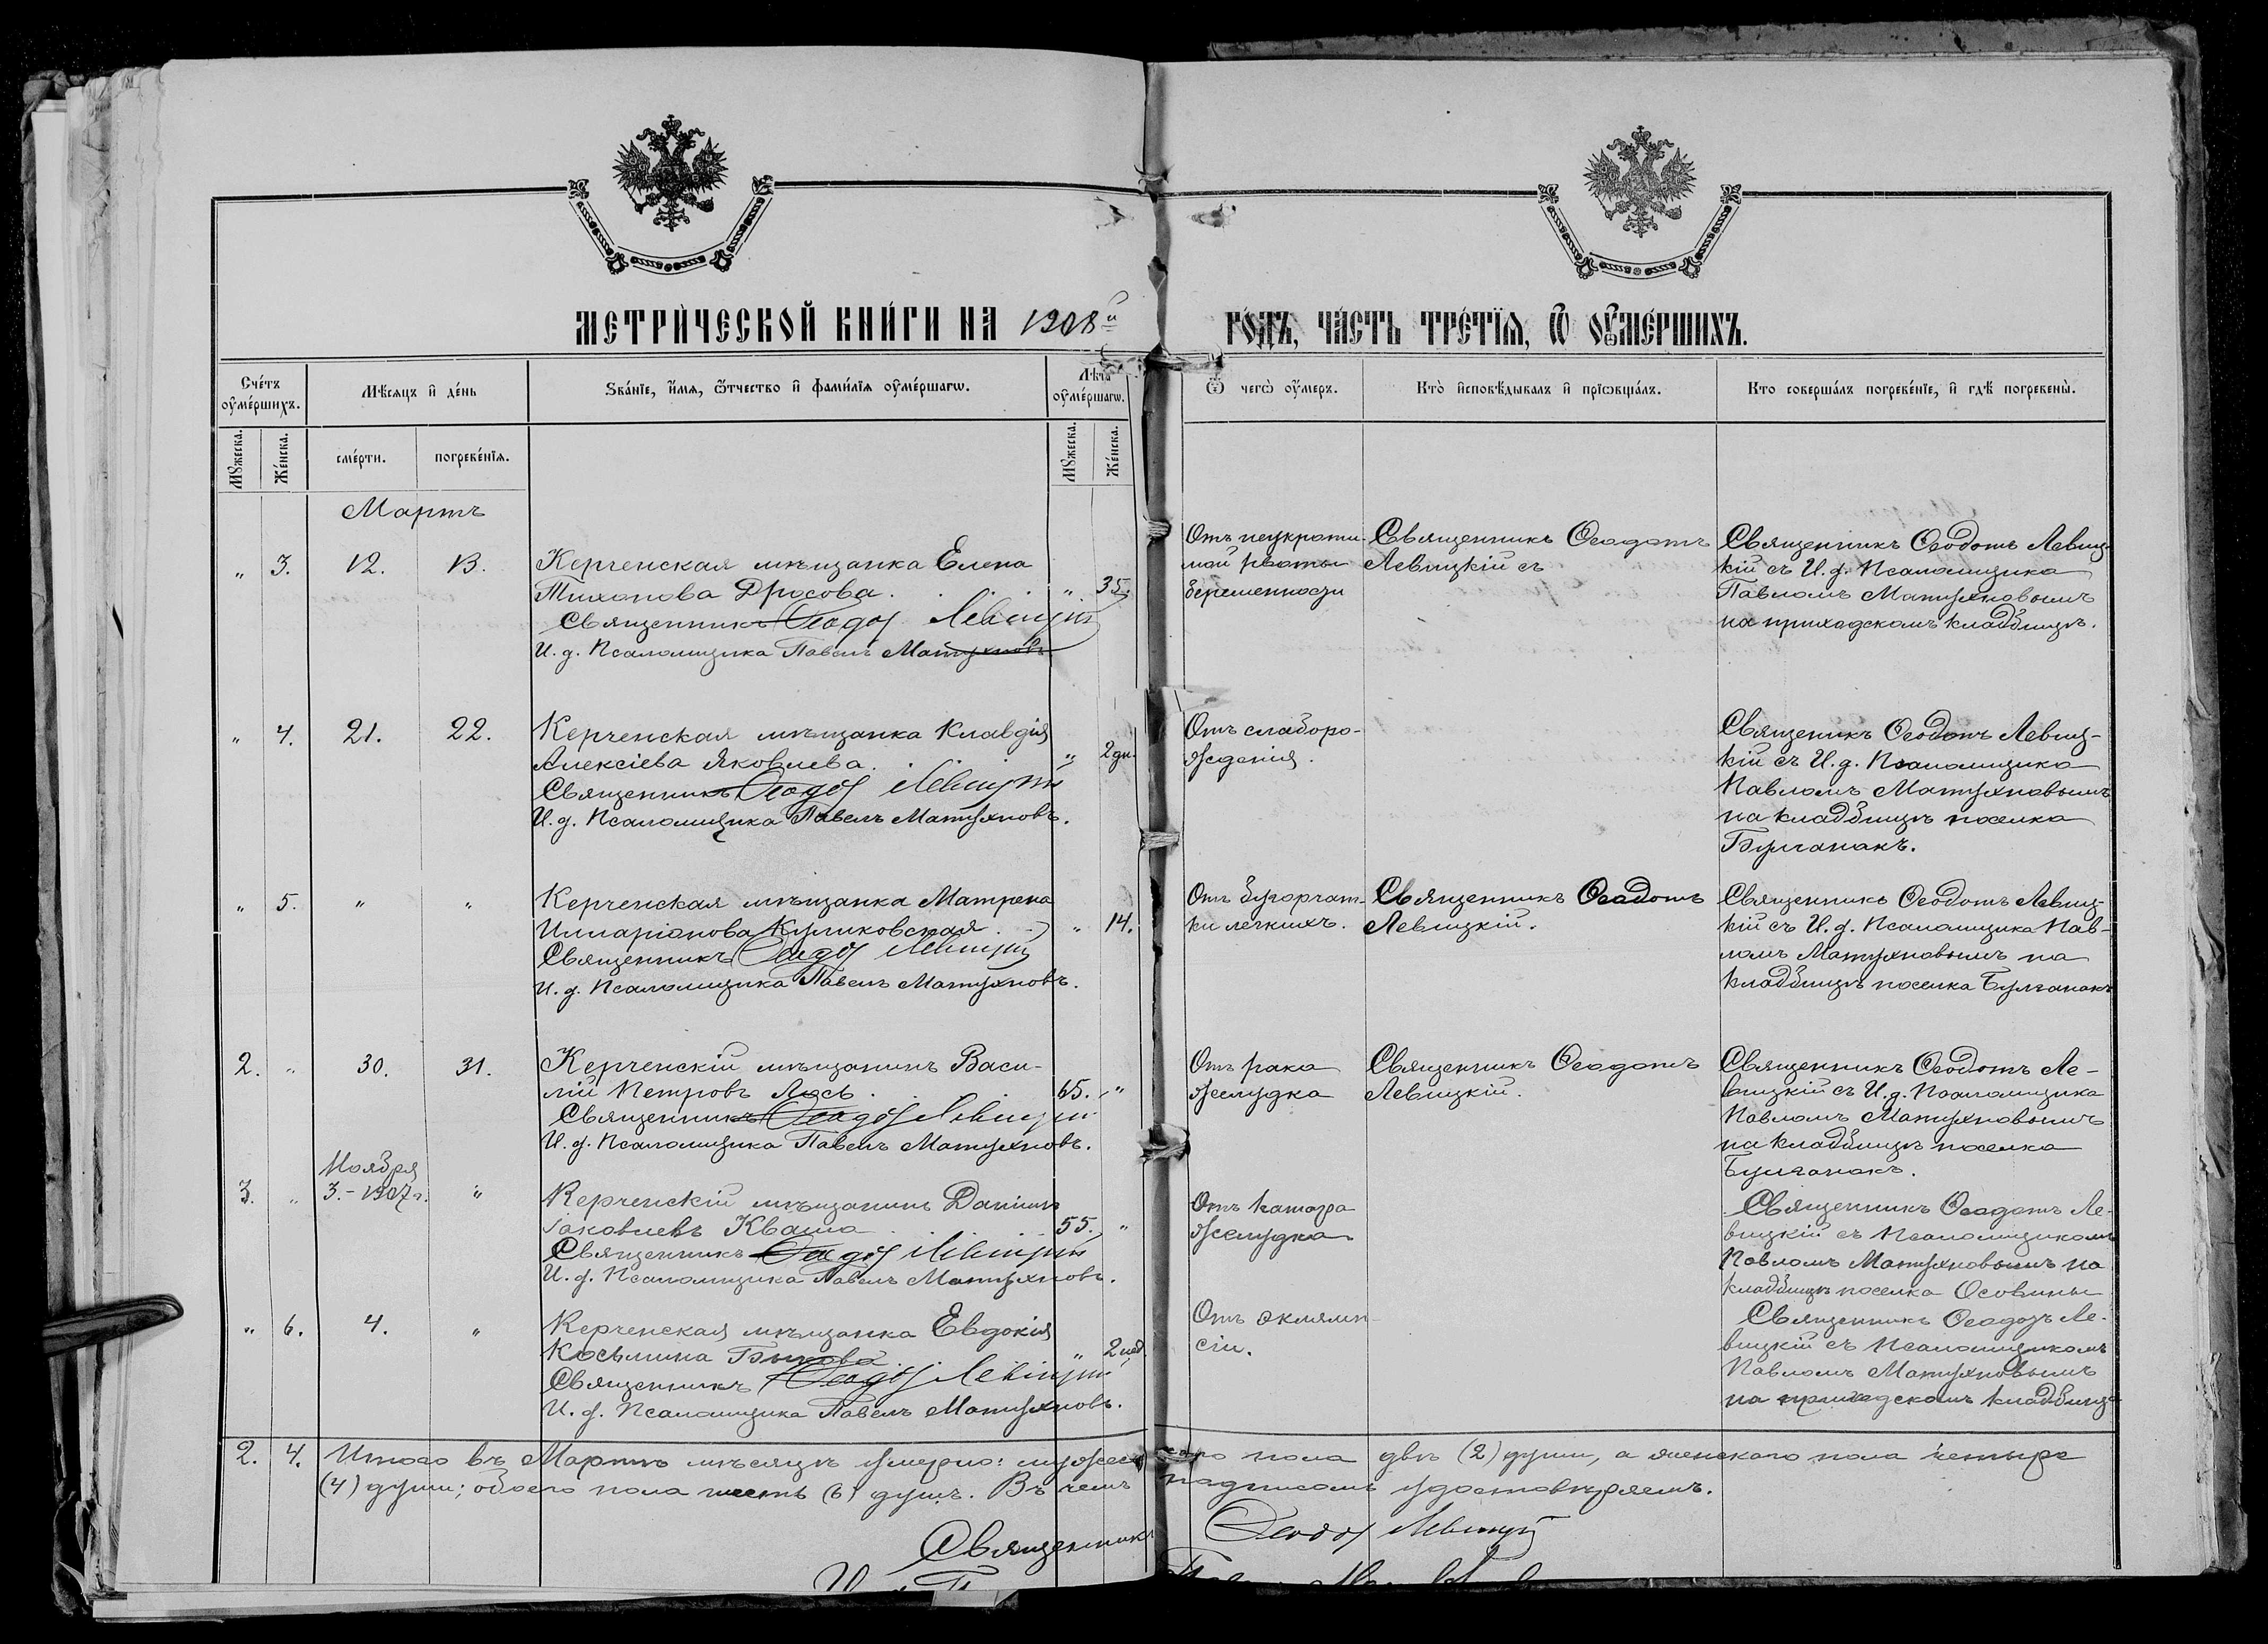 МЕТРИ́ЧЕСКОЙ КНИ́ГИ НА 1908й
ГО́ДЪ, ЧА́СТЬ ТРЕ́ТЇѦ, Ѡ ОУМЕ́РШИХЪ.
Сче́тъ оуме́ршихъ.
Мѣ́сяцъ и де́нь
Ѕва́нїе, и́мя, ѿтчество и фами́лїя оуме́ршагѡ.
Лѣта оуме́ршагѡ.
Ѿ чегѡ̀ оу́меръ.
Кто̀ исповѣ́дывалъ и прїѡбща́лъ.
Кто соверша́лъ погребе́нїе, и гдѣ̀ погребены̀.
Му́жеска.
Же́нска.
сме́рти.
погребе́нїя.
Му́жеска.
Же́нска.
Мартъ
" 3. 12. 13. Керченская мѣщанка Елена
Тихонова Дросова. " 35.
Священникъ Ѳеодотъ Левицкій
И. д. Псаломщика Павелъ Матухновъ
Отъ неукроти-
мой рвоты
беременности
Священникъ Ѳеодотъ
Левицкій съ
Священникъ Ѳеодотъ Левиц-
кій съ И. д. Псаломщика
Павломъ Матухновымъ
на приходскомъ кладбищѣ.
" 4. 21. 22. Керченская мѣщанка Клавдія
Алексіева Яковлева. " 2 дн.
Священникъ Ѳеодотъ Левицкій
И. д. Псаломщика Павелъ Матухновъ.
Отъ слаборо-
жденія.
Священикъ Ѳеодотъ Левиц-
кій съ И. д. Псаломщика
Павломъ Матухновымъ
на кладбищѣ поселка
Булганакъ.
" 5. " " Керченская мѣщанка Матрена
Илларіонова Куликовская. " 14.
Священникъ Ѳеодотъ Левицкій
И. д. Псаломщика Павелъ Матухновъ.
Отъ бугорчат-
ки легкихъ.
Священникъ Ѳеодотъ
Левицкій.
Священникъ Ѳеодотъ Левиц-
кій съ И. д. Псаломщика Пав-
ломъ Матухновымъ на
кладбищѣ поселка Булганакъ
2. " 30. 31. Керченскій мѣщанинъ Васи-
лій Петровъ Лось. 65. "
Священникъ Ѳеодотъ Левицкій
И. д. Псаломщика Павелъ Матухновъ.
Отъ рака
желудка
Священникъ Ѳеодотъ
Левицкій.
Священникъ Ѳеодотъ Ле-
вицкій съ И. д. Псаломщика
Павломъ Матухновымъ
на кладбищѣ поселка
Булганакъ.
Ноября
3. " 3.-1907 г. " Керченскій мѣщанинъ Даніилъ
Іаковлевъ Кваша 55. "
Священникъ Ѳеодотъ Левицкій
И. д. Псаломщика Павелъ Матухновъ.
Отъ катара
желудка
Священникъ Ѳеодотъ Ле-
вицкій съ Псаломщикомъ
Павломъ Матухновымъ на
кладбищѣ поселка Осовины
" 6. 4. " Керченская мѣщанка Евдокія
Косьмина Быкова. " 2 нед.
Священникъ Ѳеодотъ Левицкій
И. д. Псаломщика Павелъ Матухновъ.
Отъ эклямп-
сіи.
Священникъ Ѳеодотъ Ле-
вицкій съ Псаломщикомъ
Павломъ Матухновымъ
на приходскомъ кладбищѣ
2. 4. Итого въ Мартѣ мѣсяцѣ умерло: мужескаго пола двѣ (2) души, а женскаго пола четыре
(4) души; обоего пола шесть (6) душъ. Въ чемъ подписомъ удостовѣряемъ.
Священникъ Ѳеодотъ Левицкій